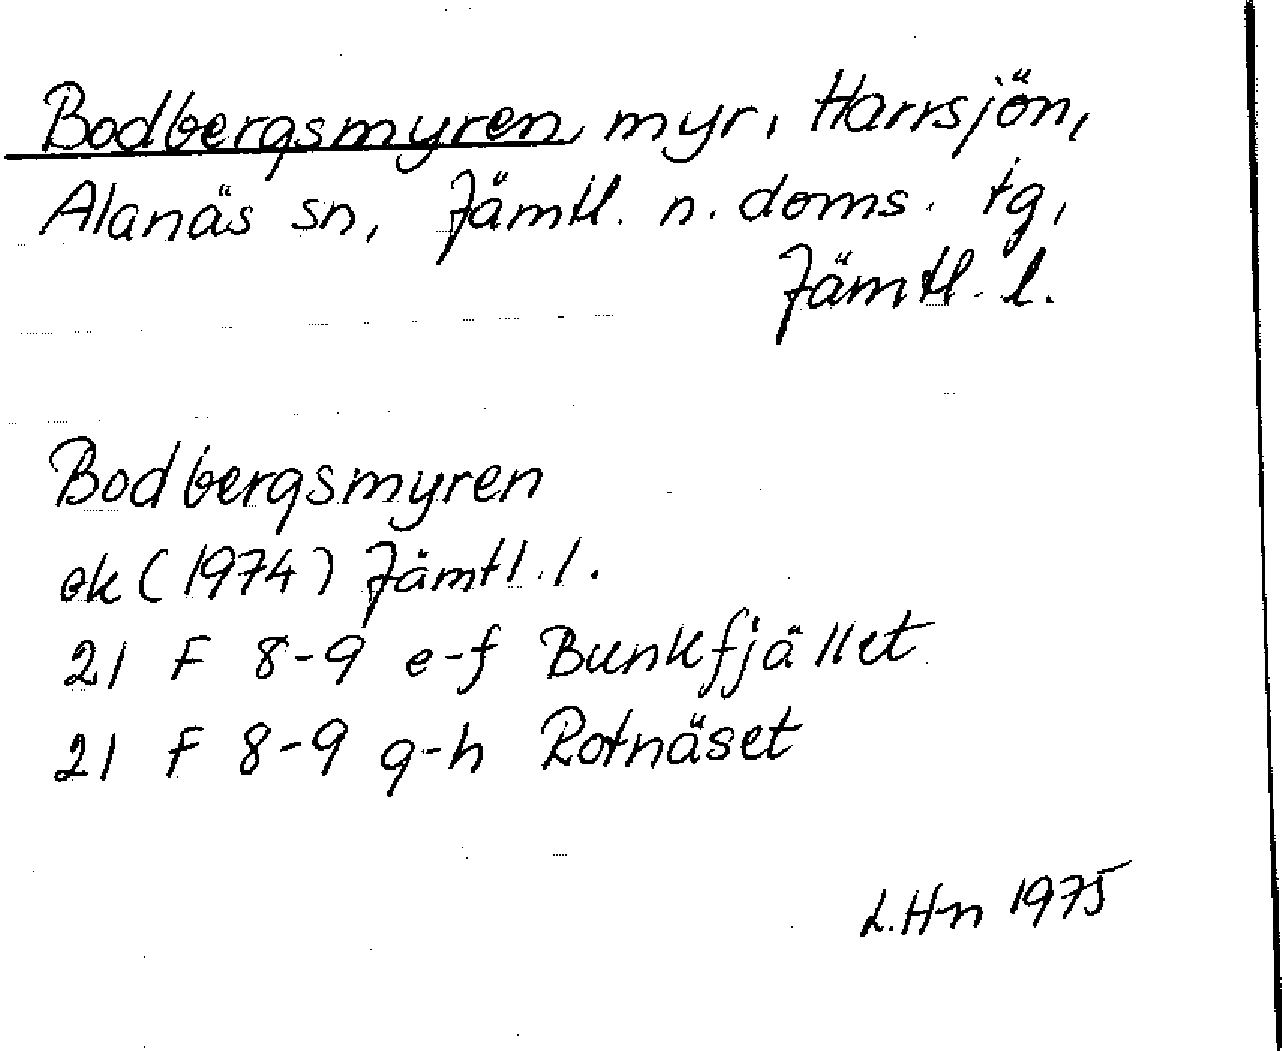 Bodbergsmyren, myr, Harrsjön,
Alanäs sn, Jämtl. n. doms. tg,
Jämtl. l.
Bodbergsmyren
ek (1974) Jämtl. l.
21 F 8-9 e-f Bunkfjället
21 F 8-9 g-h Rotnäset
L.Hn 1975